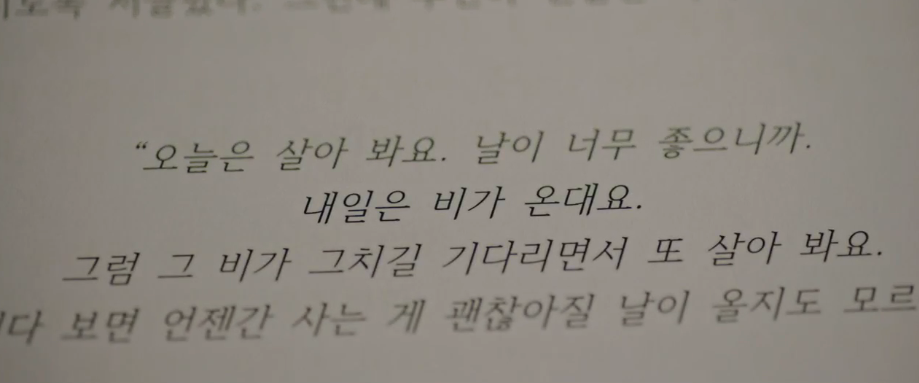 “오늘은 살아 봐요. 날이 너무 좋으니까.
내일은 비가 온대요.
그럼 그 비가 그치길 기다리면서 또 살아 봐요.
보면 언젠간 사는 게 괜찮아질 날이 올지도